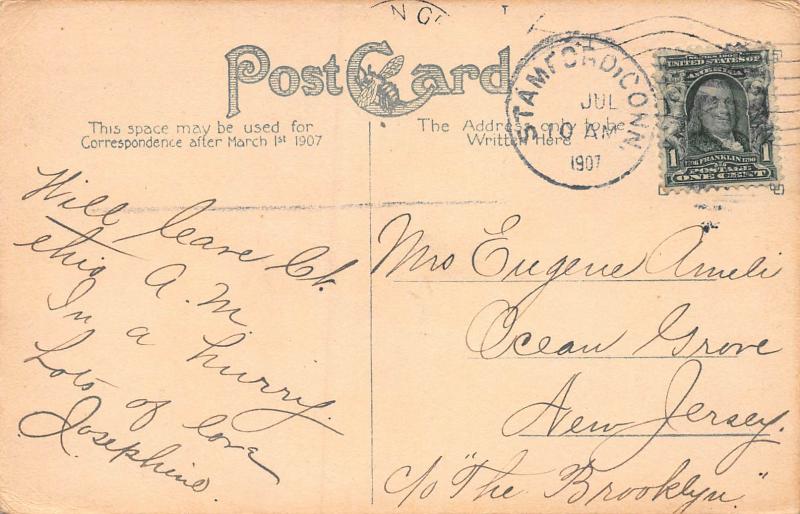 Post Card
This space may be used for
Correspondence after March 1st 1907
The Address only to be
Written Here
STAMFORD, CONN
JUL
10 AM
1907
UNITED STATES OF
AMERICA
1 FRANKLIN 1
POSTAGE
ONE CENT
Will leave Ct.
this A.M.
In a hurry.
Lots of love
Josephine.
Mrs Eugene Ameli
Ocean Grove
New Jersey.
c/o "The Brooklyn"